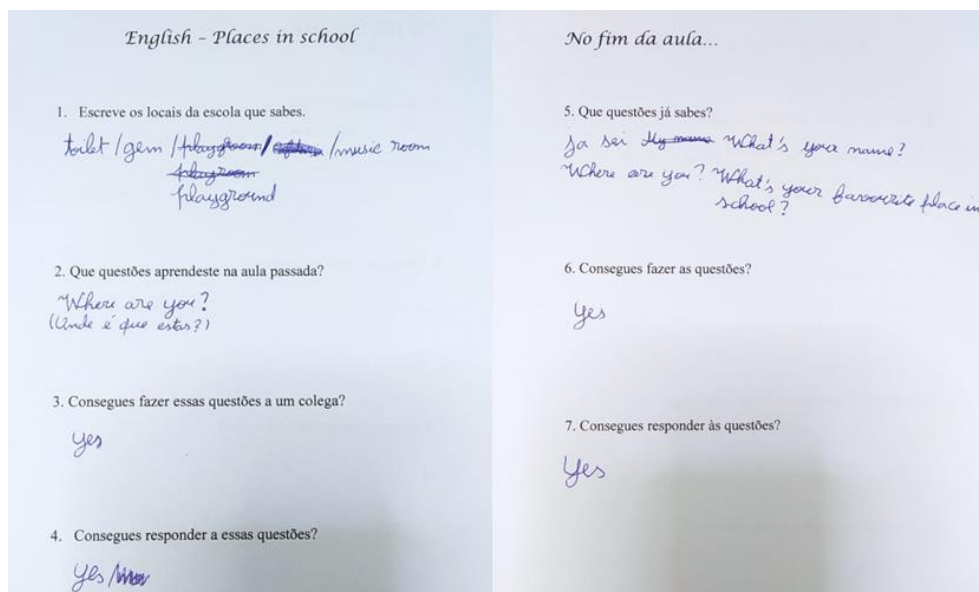 English - Places in school
1. Escreve os locais da escola que sabes.
toilet / gem / playgroom / / music room
playroom
playground
2. Que questões aprendeste na aula passada?
Where are you?
(Onde é que estas?)
3. Consegues fazer essas questões a um colega?
yes
4. Consegues responder a essas questões?
yes /
No fim da aula...
5. Que questões já sabes?
Ja sei My name What's your name?
Where are you? What's your favourite place in
school?
6. Consegues fazer as questões?
Yes
7. Consegues responder às questões?
Yes